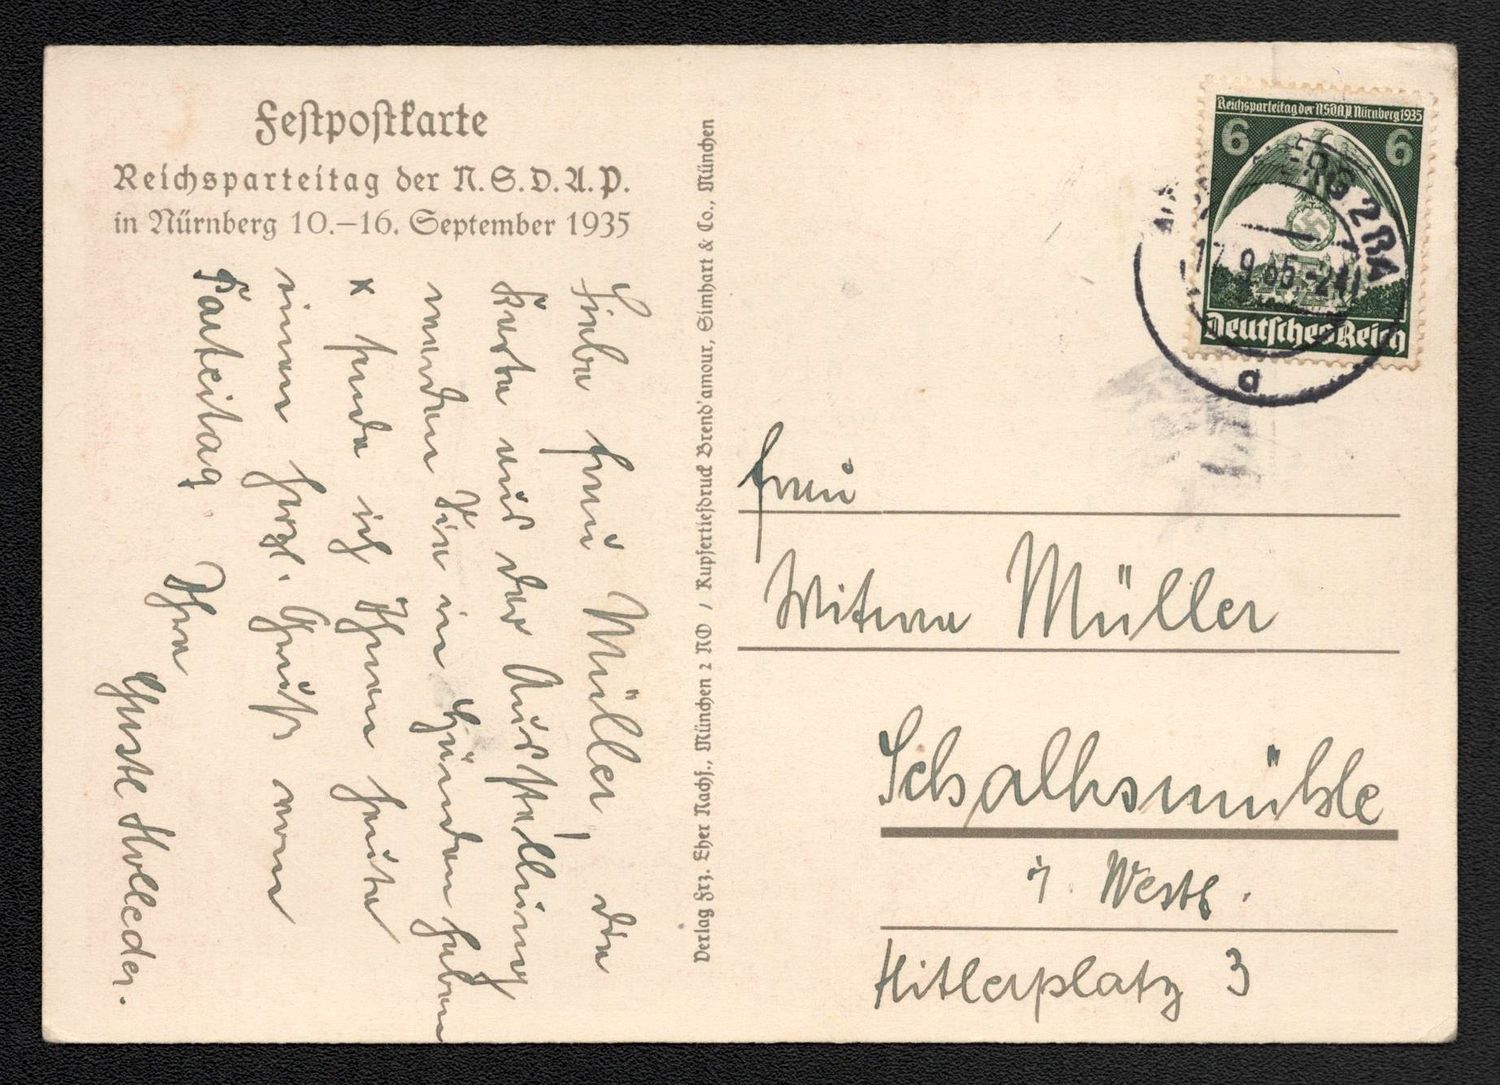 Festpostkarte
Reichsparteitag der N.S.D.A.P.
in Nürnberg 10.–16. September 1935
Liebe Frau Müller, die
Karte aus der Ausstellung
werden Sie in Händen haben
x sende ich Ihnen heute
einen herzl. Gruß vom
Parteitag. Ihre
Gustl Holleder.
Verlag Frz. Eher Nachf., München 2 NO / Kupfertiefdruck Brend'amour, Simhart & Co., München
Reichsparteitag der NSDAP Nürnberg 1935
6 6
Deutsches Reich
ERG 2 BA
17.9.35.-24
a
Frau
Witwe Müller
Schalksmühle
i. Westf.
Hitlerplatz 3